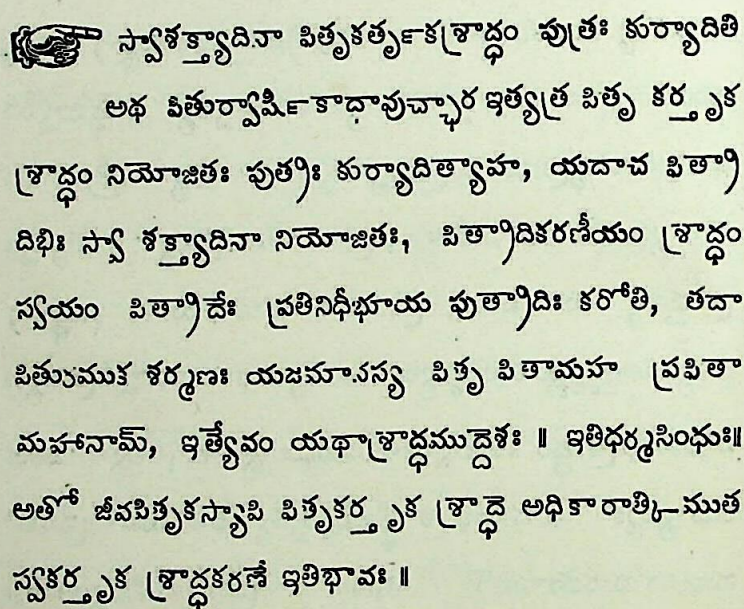 స్వాశక్త్యాదినా పితృకతృ౯కశ్రాద్ధం పుత్రః కుర్యాదితి
అథ పితుర్వార్షి౯కాదావుచ్చార ఇత్యత్ర పితృ కర్తృక
శ్రాద్ధం నియోజితః పుత్త్రః కుర్యాదిత్యాహ, యదాచ పిత్రా
దిభిః స్వా శక్త్యాదినా నియోజితః, పిత్రాదికరణీయం శ్రాద్ధం
స్వయం పిత్రాదేః ప్రతినిధీభూయ పుత్రాదిః కరోతి, తదా
పితుముక శర్మణః యజమానస్య పితృ పితామహ ప్రపితా
మహానామ్, ఇత్యేవం యథాశ్రాద్ధముద్దేశః ॥ ఇతిధర్మసింధుః॥
అతో జీవపితృకస్యాపి పితృకర్తృక శ్రాద్దె అధికారాత్కిముత
స్వకర్తృక శ్రాద్ధకరణే ఇతిభావః ॥